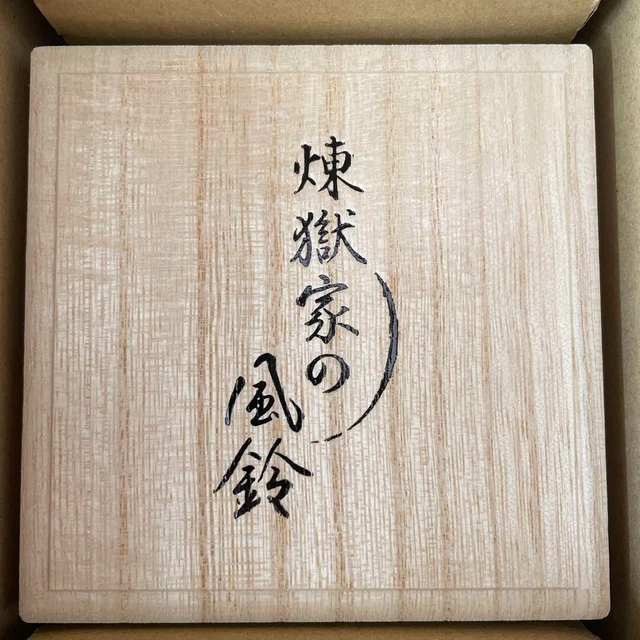 煉獄家の
風鈴